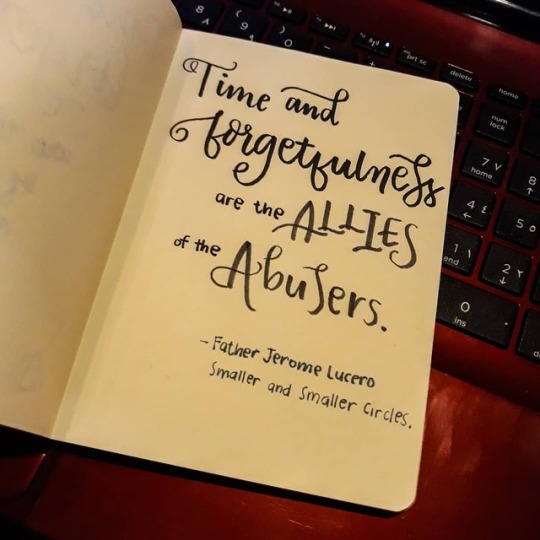 Time and
forgetfulness
are the ALLIES
of the Abusers.
- Father Jerome Lucero
Smaller and Smaller Circles.
8
9
0
prt sc
delete
home
num
lock
7 ٧
home
8
4 ٤
5
1 ١
end
2 ٢
0
ins